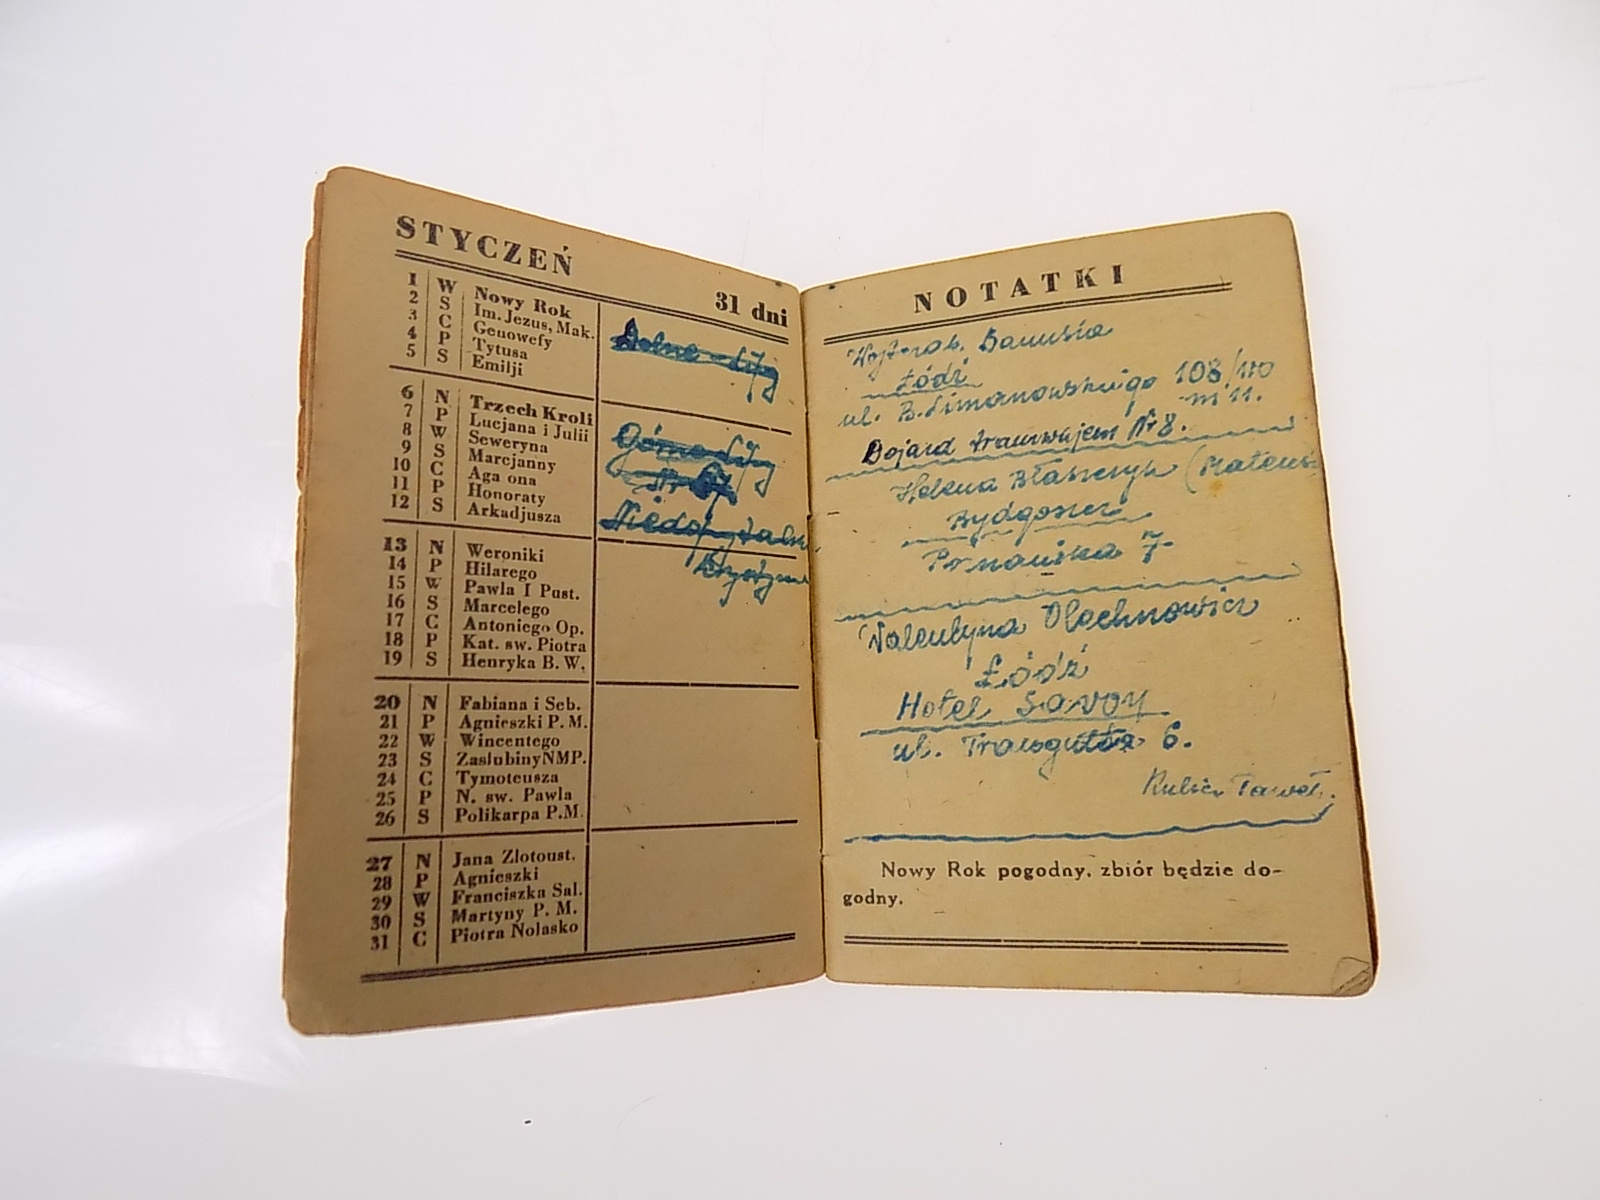 STYCZEŃ
31 dni
1 W Nowy Rok
2 S Im. Jezus, Mak.
3 C Genowefy
4 P Tytusa
5 S Emilji
6 N Trzech Kroli
7 P Lucjana i Julii
8 W Seweryna
9 S Marcjanny
10 C Aga ona
11 P Honoraty
12 S Arkadjusza
13 N Weroniki
14 P Hilarego
15 W Pawla I Pust.
16 S Marcelego
17 C Antoniego Op.
18 P Kat. sw. Piotra
19 S Henryka B. W.
20 N Fabiana i Seb.
21 P Agnieszki P. M.
22 W Wincentego
23 S Zaslubiny NMP.
24 C Tymoteusza
25 P N. sw. Pawla
26 S Polikarpa P.M.
27 N Jana Zlotoust.
28 P Agnieszki
29 W Franciszka Sal.
30 S Martyny P. M.
31 C Piotra Nolasko
NOTATKI
Danusia
Łódź
ul. B. Limanowskiego 108/110
m 11.
Dojazd tramwajem Nr 8.
Helena Błaszczyk (Mateusz
Bydgoszcz
Poznańska 7
Walentyna Olechnowicz
Łódź
Hotel Savoy
ul. Traugutta 6.
Nowy Rok pogodny, zbiór będzie do-
godny.